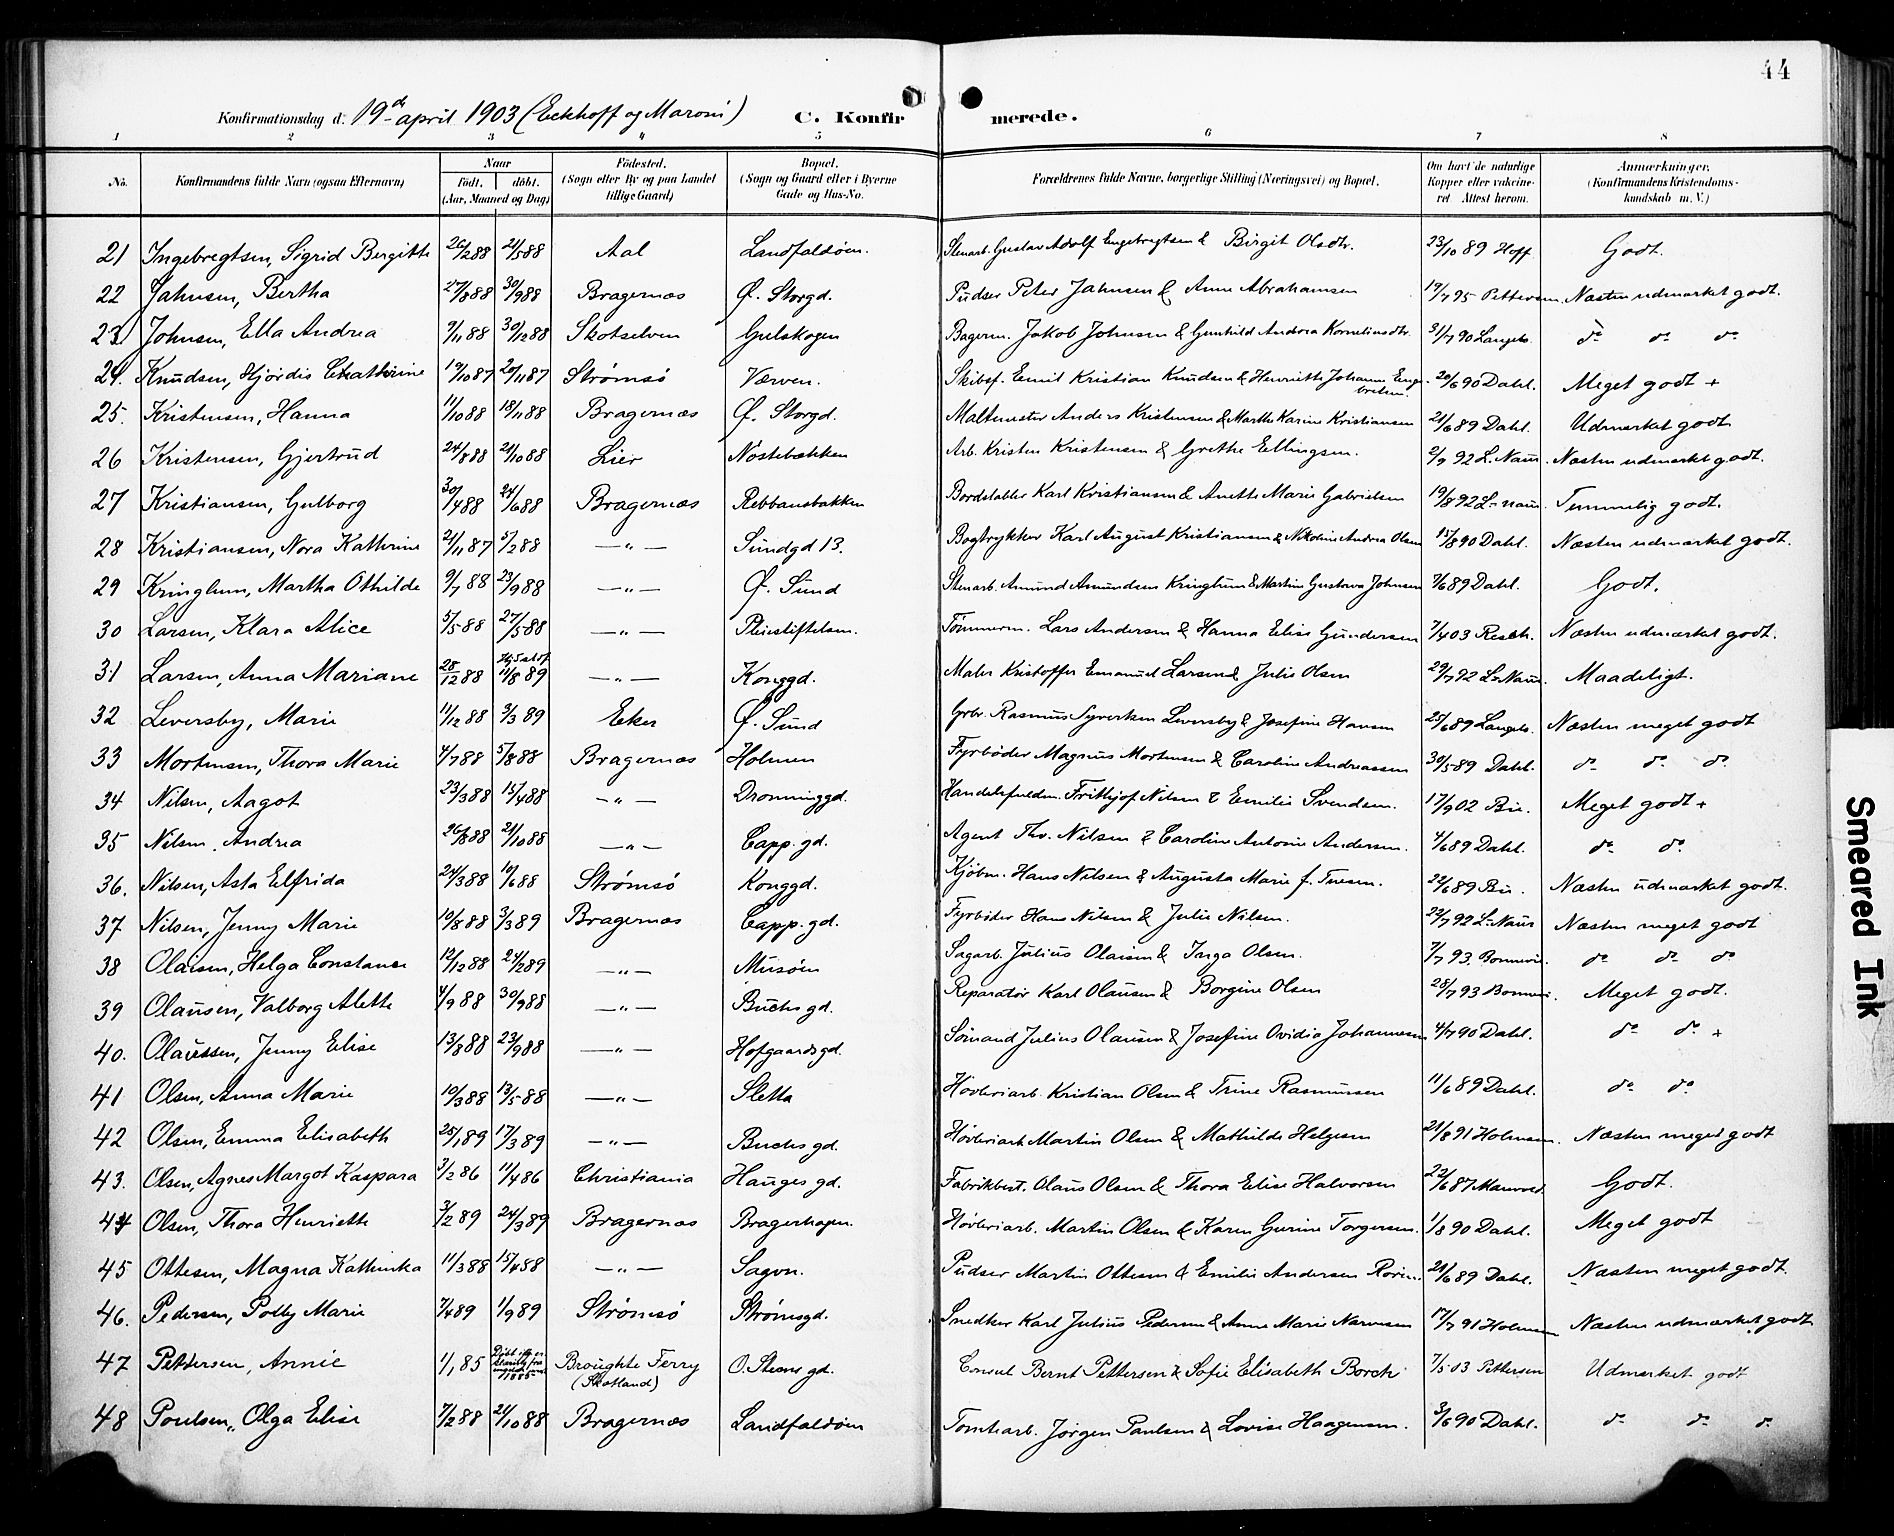 44
Konfirmationsdag d. 19de april 1903 (Eckhoff og Maroni) C. Konfirmerede.
1 2 3 4 5 6 7 8
No. Konfirmandens fulde Navn (ogsaa Efternavn) Naar födt. döbt. (Aar, Maaned og Dag) Födested. (Sogn eller By og paa Landet tillige Gaard) Bopæl. (Sogn og Gaard eller i Byerne Gade og Hus-No. Forældrenes fulde Navne, borgerlige Stilling (Næringsvei) og Bopæl. Om havt de naturlige Kopper eller vakcineret. Attest herom. Anmærkninger. (Konfirmandens Kristendomskundskab m. V.)
21 Ingebregtsen, Sigrid Bergitte 26/2 88 21/5 88 Aal Landfaldøen. Stenarb. Gustav Adolf Engebregtsen & Birgit Olsdtr. 23/10 89 Hoff Godt.
22 Jahnsen, Bertha 27/8 88 30/9 88 Bragernæs Ø. Storgd. Pudser Peter Jahnsen & Anne Abrahamsen 19/7 95 Pettersen Næsten udmærket godt.
23. Johnsen, Ella Andrea 9/11 88 30/12 88 Skotselven Gulskogen Bagerm. Jakob Johnsen & Gunhild Andrea Korneliusdtr. 31/7 90 Langeb. do do do
24. Knudsen, Hjørdis Chathrine 19/10 87 20/11 87 Strømsø Værven. Skibsf. Emil Kristian Knudsen & Henriette Johanne Engebretsen. 20/6 90 Dahl. Meget godt +
25. Kristensen, Hanna 11/10 88 18/11 88 Bragernæs Ø. Storgd. Maltmester Anders Kristensen & Marthe Karine Kristiansen 21/6 89 Dahl. Udmærket godt
26 Kristensen, Gjertrud 24/8 88 21/10 88 Lier Nøstebækken Arb. Kristen Kristensen & Grethe Ellingsen. 2/9 92 L. Naur. Næsten udmærket godt.
27 Kristiansen, Gulborg 30/4 88 24/6 88 Bragernæs Rebbansbakken Bordstabler Karl Kristiansen & Anette Marie Gabrielsen 19/8 92 L. Naur. Temmelig godt.
28 Kristiansen, Nora Kathrine 21/11 87 5/2 88 — " — Sundgd 13. Bogtrykker Karl August Kristiansen & Nikoline Andrea Olsen 15/8 90 Dahl. Næsten udmærket godt.
29 Kringlum, Martha Othilde 9/7 88 23/9 88 — " — Ø. Sund Stenarb. Amund Amundsen Kringlum & Martine Gustava Johnsen 7/6 89 Dahl. Godt.
30 Larsen, Klara Alice 5/5 88 27/5 88 — " — Pleiestiftelsen. Tømmerm. Lars Andersen & Hanna Elise Gundersen 7/4 03 Resch. Næsten udmærket godt.
31 Larsen, Anna Mariane 28/12 88 11/8 89 — " — Konggd. Maler Kristoffer Emanuel Larsen & Julie Olsen 29/7 92 L. Naur. Maadeligt.
32 Leversby, Marie 11/12 88 3/3 89 Eker Ø. Sund Grbr. Rasmus Syvertsen Leversby & Josefine Hansen 25/6 89 Langeb. Næsten meget godt
33 Mortensen, Thora Marie 4/7 88 5/8 88 Bragernæs Holmen Fyrbøder Magnus Mortensen & Caroline Andreassen 30/5 89 Dahl. do do do
34 Nilsen, Aagot 23/3 88 15/4 88 — " — Dronninggd. Handelsfuldm. Frithjof Nilsen & Emilie Svendsen. 17/9 02 Bu. Meget godt +
35 Nilsen, Andrea 26/8 88 21/10 88 — " — Capp. gd. Agent Thv. Nilsen & Caroline Antonie Andersen. 4/6 89 Dahl. do do
36. Nilsen, Asta Elfrida 24/3 88 10/6 88 Strømsø Konggd. Kjøbm. Hans Nilsen & Augusta Marie f. Tuesen. 22/6 89 Bu. Næsten udmærket godt.
37 Nilsen, Jenny Marie 10/8 88 3/3 89 Bragernæs Capp. gd. Fyrbøder Hans Nilsen & Julie Nilsen. 22/7 92 L. Naur Næsten meget godt
38 Olaisen, Helga Constance 12/12 88 24/2 89 — " — Musøen Sagarb. Julius Olaisen & Inga Olsen. 7/7 93. Bonnevie. do do do
39 Olausen, Valborg Alette 4/9 88 30/9 88 — " — Buchs gd. Reparatør Karl Olausen & Borgine Olsen 28/7 93 Bonnevi. Meget godt.
40. Olaussen, Jenny Elise 13/8 88 23/9 88 — " — Hofgaardsgd. Sømand Julius Olausen & Josefine Ovidia Johannesen 4/7 90 Dahl. do do +
41 Olsen, Anna Marie 10/3 88 13/5 88 — " — Sletta Høvleriarb. Kristian Olsen & Trine Rasmussen 11/6 89 Dahl. do do
42 Olsen, Emma Elisabeth 25/1 89 17/3 89 — " — Buchs gd. Høvleriarb Martin Olsen & Mathilde Helgesen 21/8 91 Holmsen. Næsten meget godt
43. Olsen, Agnes Margot Kaspara 3/2 86 11/4 86 Christiania Hauges gd. Fabrikbest. Olaus Olsen & Thora Elise Halvorsen 22/6 87 Godt.
44 Olsen, Thora Henriette 3/2 89 24/3 89 Bragernæs Bragerhagen. Høvleriarb. Martin Olsen & Karen Gurine Torgersen. 1/8 90 Dahl. Meget godt
45 Ottesen, Magna Kathinka 11/3 88 15/4 88 — " — Sagvn. Pudser Martin Ottesen & Emilie Andersen 21/6 89 Dahl. Næsten meget godt.
46. Pedersen, Polly Marie 7/4 89 1/9 89 Strømsø Strømsgd. Snedker Karl Julius Pedersen & Anne Marie Narvesen 17/7 91 Holmsen Næsten udmærket godt
47 Pettersen, Annie 1/1 85 1885 Broughte Ferry (Skotland) O. Steens gd. Consul Bernt Pettersen & Sofie Elisabeth Borch 7/5 03 Pettersen Udmærket godt
48 Poulsen, Olga Elise 7/2 88 21/10 88 Bragernæs Landfaldøen Tomtearb. Jørgen Paulsen & Lovise Haagensen. 3/6 90 Dahl. do do do
Smeared Ink